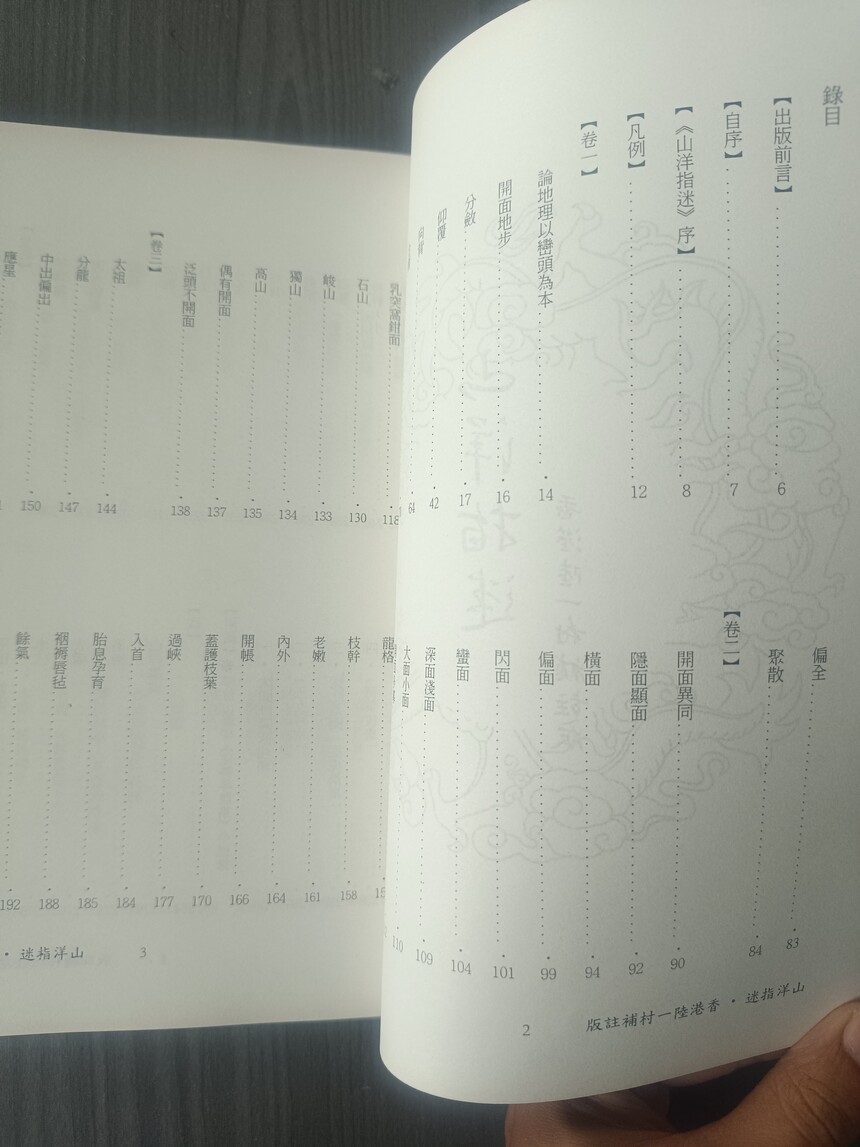 錄目
【出版前言】 6
【自序】 7
【《山洋指迷》序】 8
【凡例】 12
【卷一】
論地理以巒頭為本 14
開面地步 16
分斂 17
仰覆 42
64
偏全 83
聚散 84
【卷二】
開面異同 90
隱面顯面 92
橫面 94
偏面 99
閃面 101
蠻面 104
深面淺面 109
大面小面 110
2
版註補村一陸港香・迷指洋山
乳突窩鉗面 118
石山 130
峻山 133
獨山 134
高山 135
偶有開面 137
泛頭不開面 138
【卷三】
太祖 144
分龍 147
中出偏出 150
應星
龍格
枝幹 158
老嫩 161
內外 164
開帳 166
蓋護枝葉 170
過峽 177
入首 184
胎息孕育 185
裀褥唇毡 188
餘氣 192
・迷指洋山
3